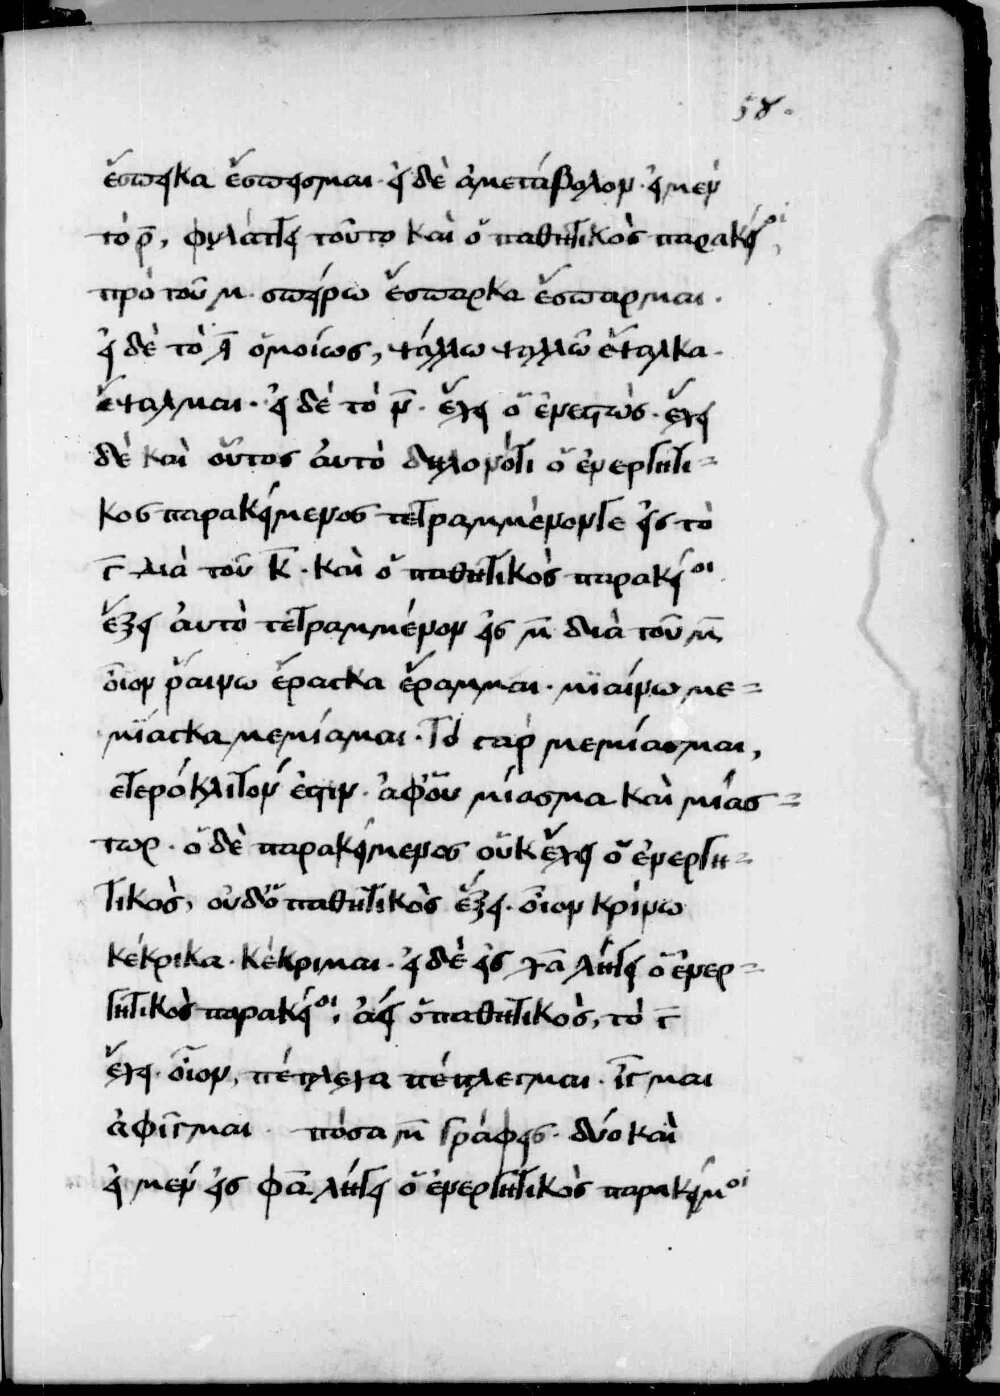 58.
ἔσπεικα ἔσπεισμαι· εἰ δὲ ἀμετάβολον· εἰ μὲν
τὸ ρ̅, φυλάττει τοῦτο καὶ ὁ παθητικὸς παρακείοι,
πρὸ τοῦ μ· σπείρω ἔσπαρκα ἔσπαρμαι·
εἰ δὲ τὸ λ̅ ὁμοίως, τάλλω ταλλῶ ἔταλκα·
ἔταλμαι· εἰ δὲ τὸ ν̅· ἔχει ὁ ἐνεστώς· ἔχει
δὲ καὶ οὗτος αὐτὸ δηλονότι ὁ ἐνεργητι=
κος παρακείμενος τετραμμένον γε εἰς τὸ
γ̅ διὰ τοῦ κ̅· καὶ ὁ παθητικὸς παρακείοι
ἕξει αὐτὸ τετραμμένον εἰς μ̅ διὰ τοῦ μ̅,
οἷον ῥαίνω ἔραγκα ἔραμμαι· μιαίνω με=
μίαγκα μεμίαμαι· Τὸ γὰρ μεμίασμαι,
ετερόκλιτόν ἐστιν· ἀφ' οὗ μίασμα καὶ μιάσ=
τωρ· ὁ δὲ παρακείμενος οὐκ ἔχει ὁ ἐνεργη=
τικὸς, οὐδ' ὁ παθητικὸς ἕξει· οἷον κρίνω
κέκρικα· κέκριμαι· εἰ δὲ εἰς χα̅ λήγει ὁ ἐνερ=
γητικὸς παρακείοι, ἀεὶ ὁ παθητικὸς, τὸ γ̅
ἔχει· οἷον, πέπλεχα πέπλεγμαι· ἷγμαι
ἀφῖγμαι· πόσα μ̅ γράφεις· δύο καὶ
εἰ μὲν εἰς φα̅ λήγει ὁ ἐνεργητικὸς παρακείμοι